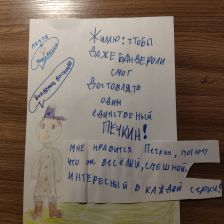 Желаю: чтобы
даже бандероли
смог
доставлять
один
единственный
Печкин!
Мне нравится Печкин, потому
что он весёлый, смешной,
интересный в каждой серии!